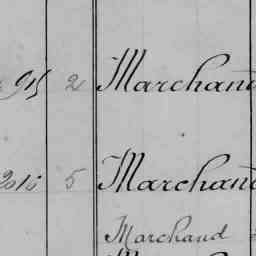 915 2 Marchand
2010 5 Marchand
Marchand